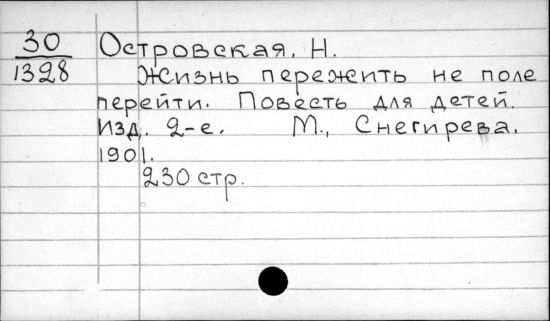 30
1328
Островская, Н.
Жизнь пережить не поле
перейти. Повесть для детей.
Изд. 2-е. М., Снегирева.
1901.
230 стр.